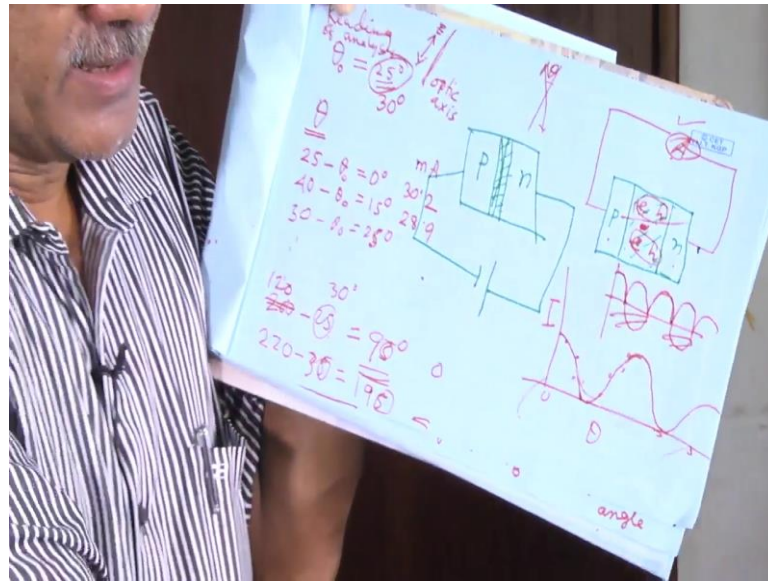 Reading
of analyser
θ₀ = 25°
30°
E
optic
axis
θ
25 - θ₀ = 0°
40 - θ₀ = 15°
30 - θ₀ = 25°
mA
30.2
28.9
P n
A
P e h n
e h
120 30°
- 25 = 90°
220 - 30 = 195
I
0
θ
angle